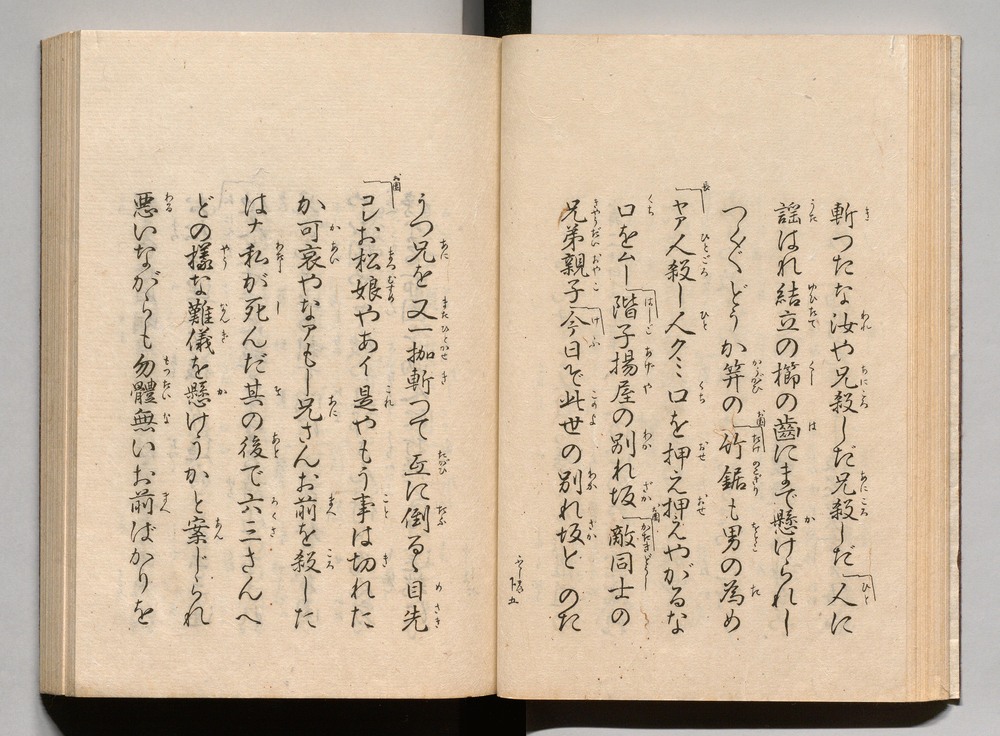 斬つたな汝や兄殺しだ兄殺しだ人に
謡はれ結立の櫛の歯にまで懸けられし
つく〴〵どうか笄の竹鋸も男の為め
ヤア人殺し人クミ口を押え押えやがるな
口をムー階子揚屋の別れ坂敵同士の
兄弟親子今日で此世の別れ坂と のた
うつ兄を又一拗斬つて互に倒るゝ目先
コレお松娘やあイ是やもう事は切れた
か可哀やなアもし兄さんお前を殺した
はナ私が死んだ其の後で六三さんへ
どの様な難儀を懸けうかと案じられ
悪いながらも勿體無いお前ばかりを